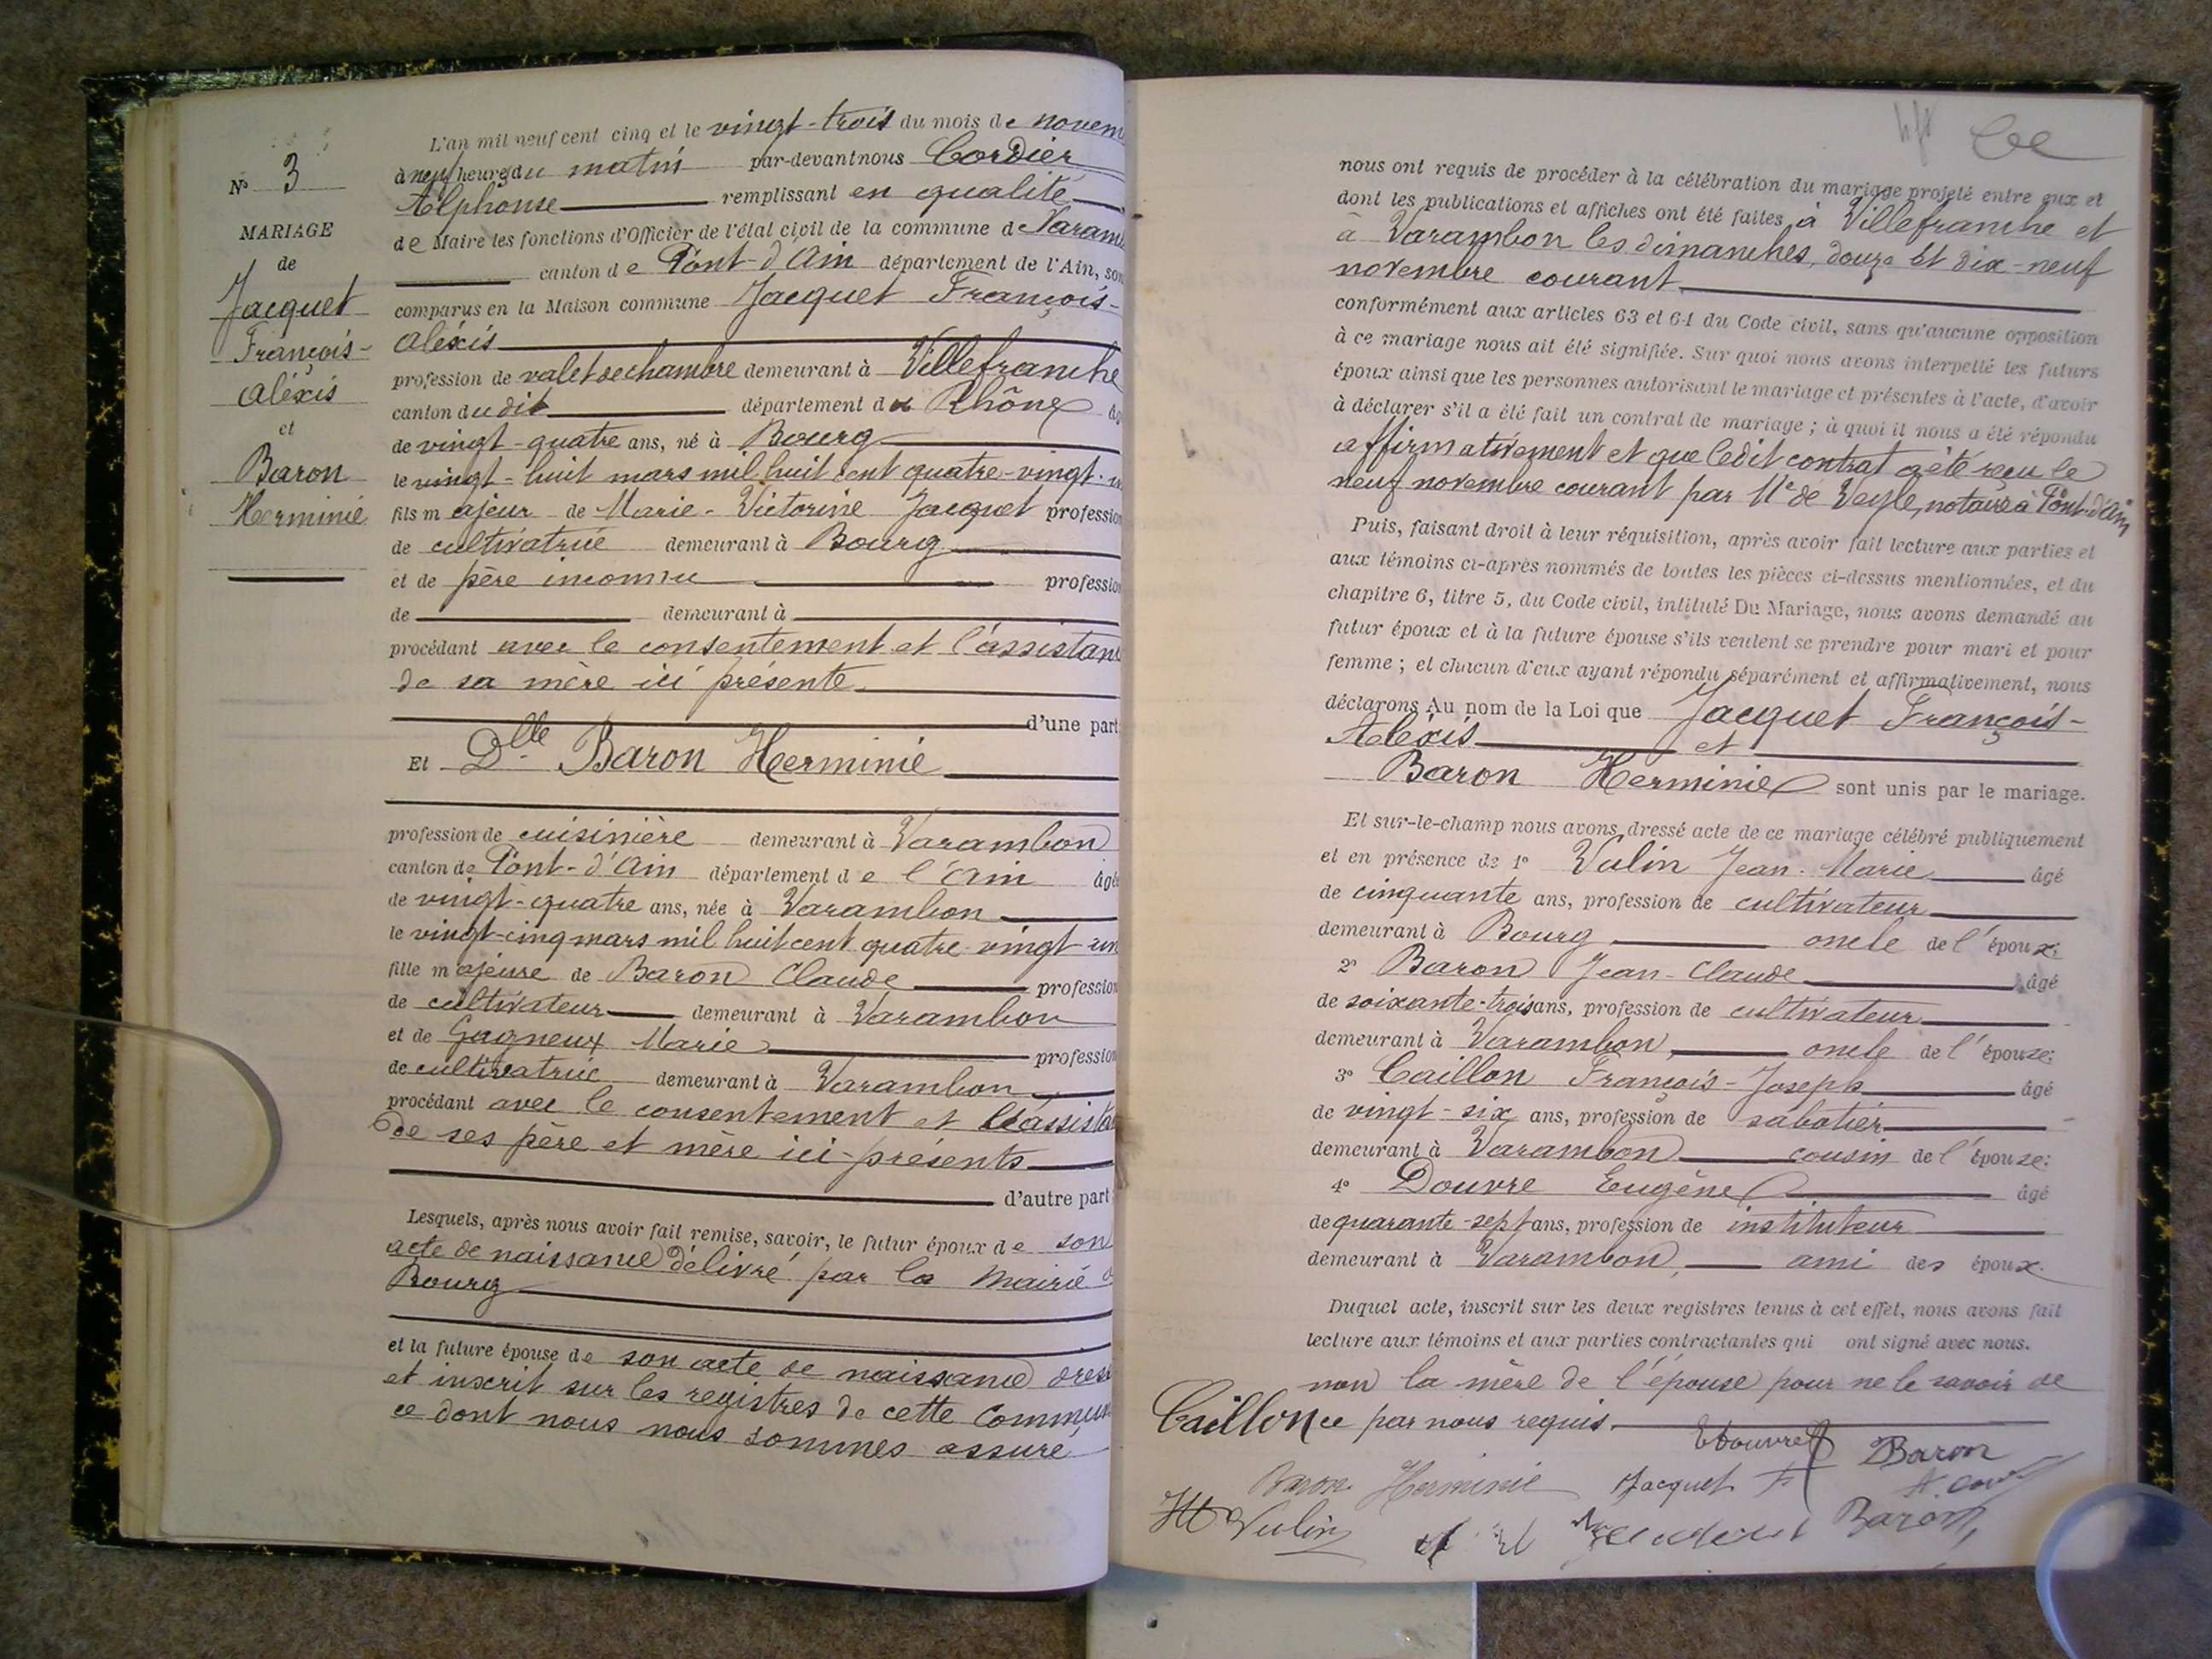 N° 3
MARIAGE
de
Jacquet
François-
Aléxis
et
Baron
Herminie
L'an mil neuf cent cinq et le vingt-trois du mois de novem
à neuf heures du matin par-devant nous Cordier
Alphonse remplissant en qualité
de Maire les fonctions d'Officier de l'état civil de la commune de Varam
canton de Pont-d'Ain département de l'Ain, son
comparus en la Maison commune Jacquet François-
Aléxis
profession de valet de chambre demeurant à Villefranche
canton dudit département du Rhône âg
de vingt-quatre ans, né à Bourg
le vingt-huit mars mil huit cent quatre-vingt-u
fils majeur de Marie-Victorine Jacquet profession
de cultivatrice demeurant à Bourg
et de père inconnu profession
de demeurant à
procédant avec le consentement et l'assistan
de sa mère ici présente.
d'une part
Et Dlle Baron Herminie
profession de cuisinière demeurant à Varambon
canton de Pont-d'Ain département de l'Ain âgé
de vingt-quatre ans, née à Varambon
le vingt-cinq mars mil huit cent quatre-vingt-un
fille majeure de Baron Claude profession
de cultivateur demeurant à Varambon
et de Gagneux Marie profession
de cultivatrice demeurant à Varambon
procédant avec le consentement et l'assista
de ses père et mère ici-présents
d'autre part
Lesquels, après nous avoir fait remise, savoir, le futur époux de son
acte de naissance délivré par la Mairie d
Bourg
et la future épouse de son acte de naissance dress
et inscrit sur les registres de cette commun
ce dont nous nous sommes assuré
nous ont requis de procéder à la célébration du mariage projeté entre eux et
dont les publications et affiches ont été faites, à Villefranche et
à Varambon les dimanches, douze et dix-neuf
novembre courant
conformément aux articles 63 et 64 du Code civil, sans qu'aucune opposition
à ce mariage nous ait été signifiée. Sur quoi nous avons interpellé les futurs
époux ainsi que les personnes autorisant le mariage et présentes à l'acte, d'avoir
à déclarer s'il a été fait un contrat de mariage ; à quoi il nous a été répondu
affirmativement et que ledit contrat a été reçu le
neuf novembre courant par Me de Veyle, notaire à Pont-d'Ain
Puis, faisant droit à leur réquisition, après avoir fait lecture aux parties et
aux témoins ci-après nommés de toutes les pièces ci-dessus mentionnées, et du
chapitre 6, titre 5, du Code civil, intitulé Du Mariage, nous avons demandé au
futur époux et à la future épouse s'ils veulent se prendre pour mari et pour
femme ; et chacun d'eux ayant répondu séparément et affirmativement, nous
déclarons Au nom de la Loi que Jacquet François-
Aléxis et
Baron Herminie sont unis par le mariage.
Et sur-le-champ nous avons dressé acte de ce mariage célébré publiquement
et en présence de 1° Vulin Jean-Marie âgé
de cinquante ans, profession de cultivateur
demeurant à Bourg oncle de l'époux;
2° Baron Jean-Claude âgé
de soixante-trois ans, profession de cultivateur
demeurant à Varambon, oncle de l'épouse;
3° Caillon François-Joseph âgé
de vingt-six ans, profession de sabotier
demeurant à Varambon cousin de l'épouse;
4° Douvre Eugène âgé
de quarante-sept ans, profession de instituteur
demeurant à Varambon, ami des époux.
Duquel acte, inscrit sur les deux registres tenus à cet effet, nous avons fait
lecture aux témoins et aux parties contractantes qui ont signé avec nous.
non la mère de l'épouse pour ne le savoir de
Caillon ce par nous requis.
EDouvre Baron
Baron Herminie Jacquet F
Vulin Baron